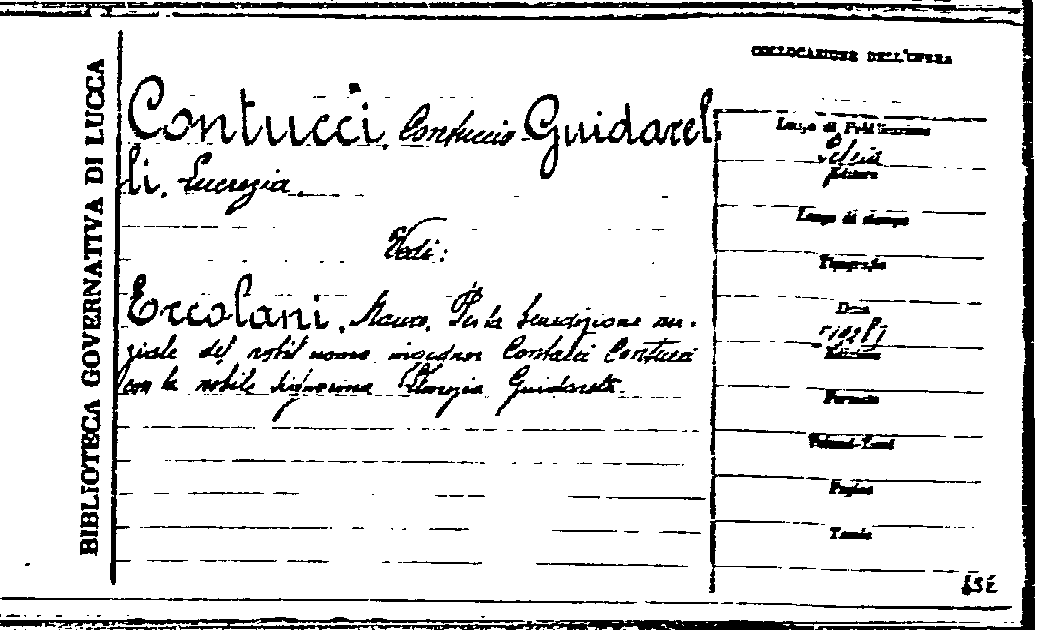 BIBLIOTECA GOVERNATIVA DI LUCCA
COLLOCAZIONE DELL'OPERA
Contucci, Contuccio - Guidarel
li, Lucrezia.
Vedi:
Ercolani, Mauro. Per la benedizione nu-
ziale del nobil uomo ingegner Contucci
con la nobile signorina Lucrezia Guidarelli.
Luogo di Pubblicazione
Editore
Luogo di stampa
Tipografia
Data
Edizione
Formato
Volumi-Tomi
Pagine
Tavole